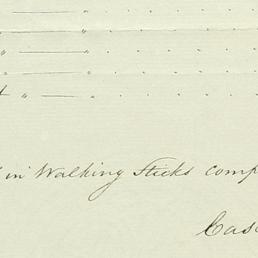 " "
" "
" "
" "
in Walking Sticks comp
Cas